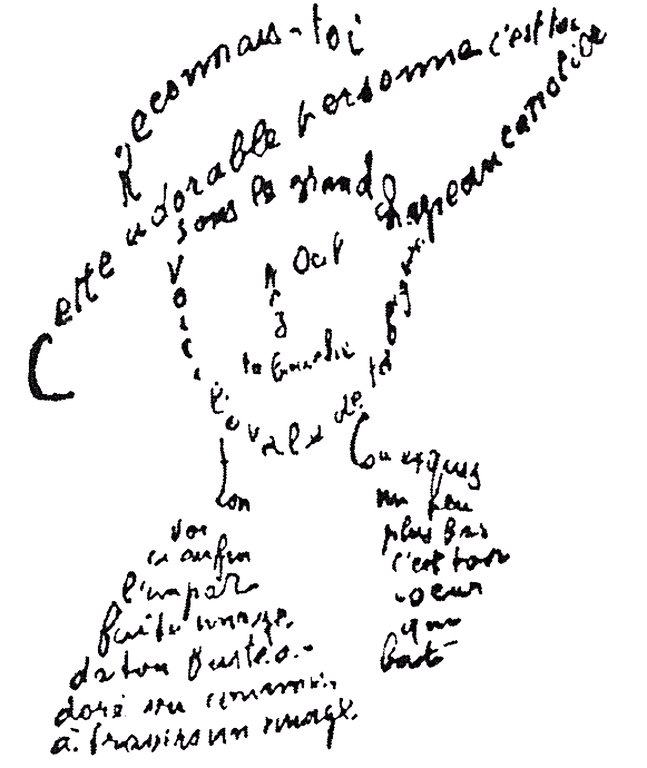 Reconnais-toi
Cette adorable personne c'est toi
sous le grand chapeau canotier
Oeil
Nez
ta bouche
Voici l'ovale de ta figure
ton
Cou exquis
Voi
ci enfin
l'impar
faite image
de ton buste a
doré vu comme
à travers un nuage
un peu
plus bas
c'est ton
coeur
qui
bat